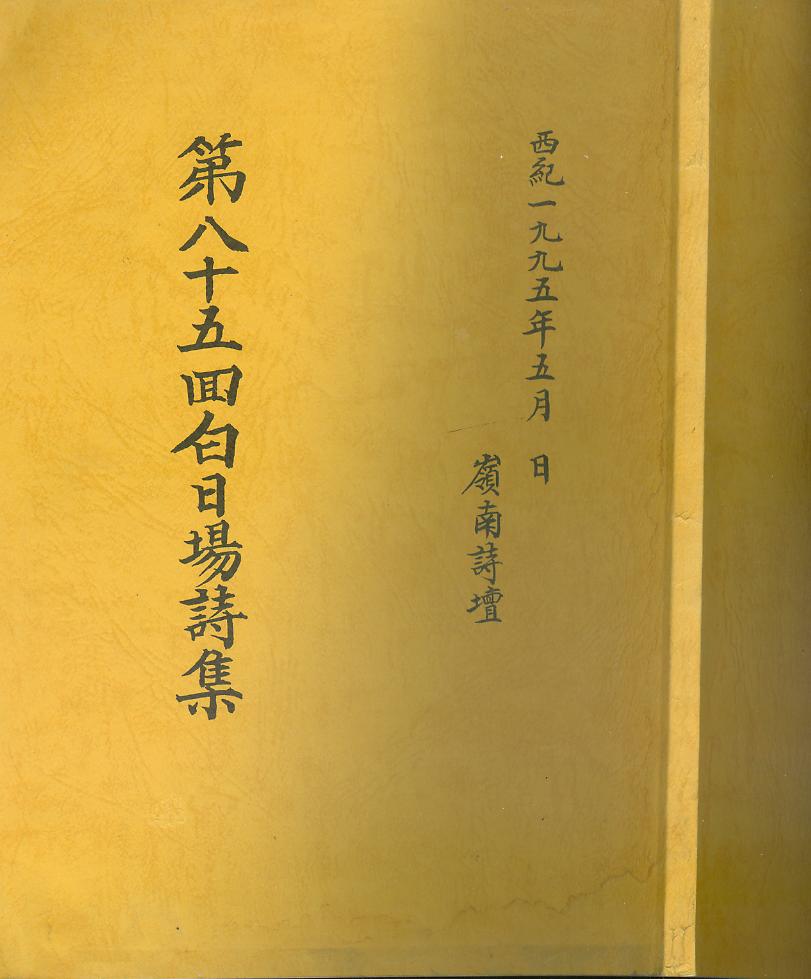 西紀一九九五年五月 日
嶺南詩壇
第八十五回白日場詩集